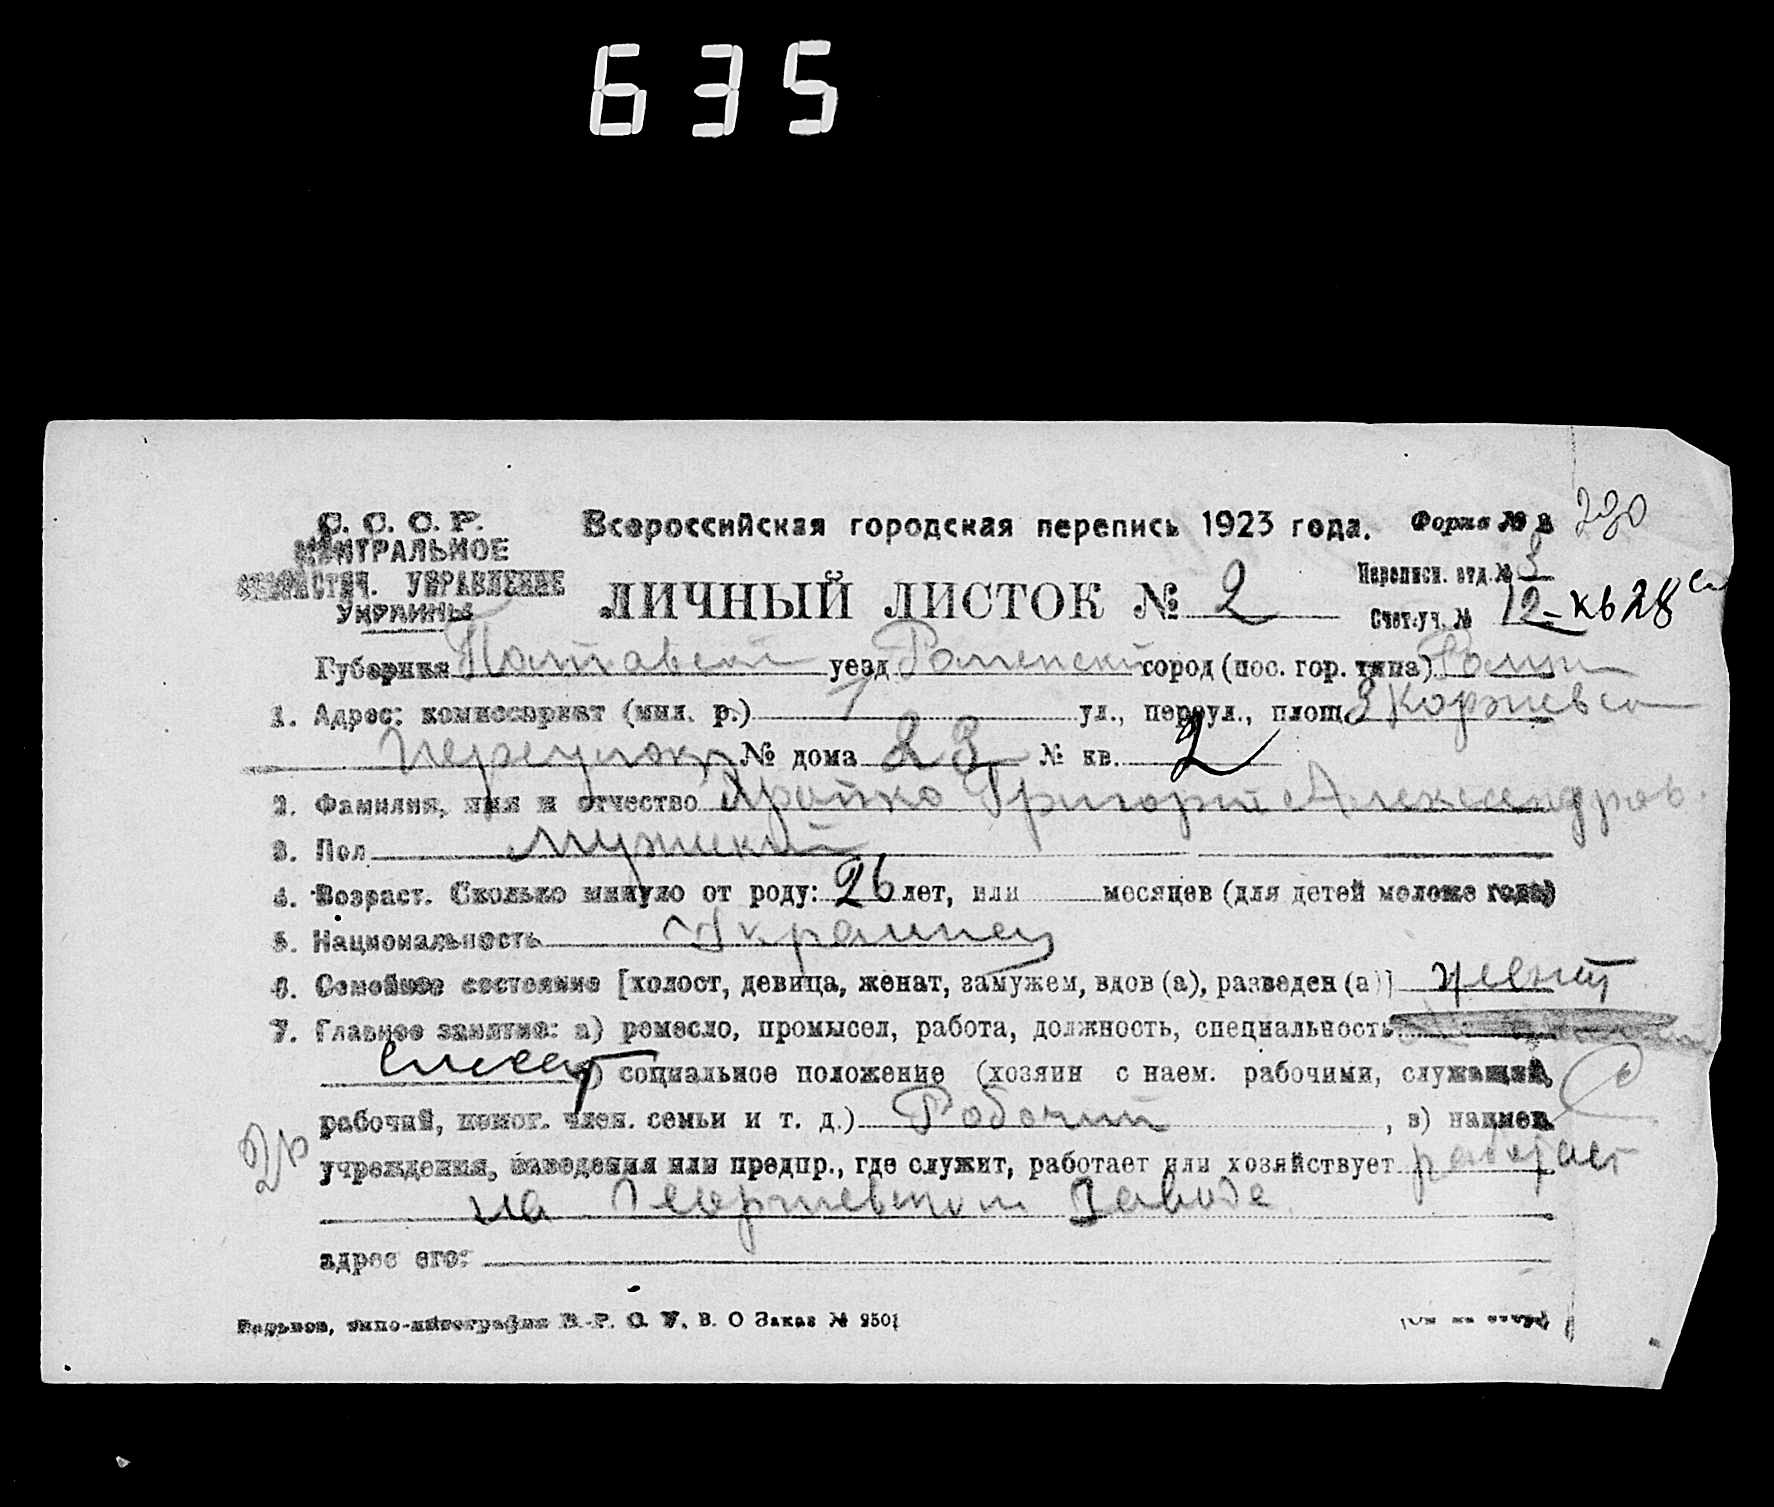 635
С. С. С. Р.
ЦЕНТРАЛЬНОЕ
СТАТИСТИЧ. УПРАВЛЕНИЕ
УКРАИНЫ
Всероссийская городская перепись 1923 года. Форма № 2 230
ЛИЧНЫЙ ЛИСТОК № 2
Переписн. отд. № 3
Счет. уч. № 12 - кв 28
Губерния Полтавской уезд Роменский город (пос. гор. типа) Ромны
1. Адрес: комиссариат (мил. р.) 1 ул., переул., площ. 3 Коржевск
переулок № дома 23 № кв. 2
2. Фамилия, имя и отчество Григорий Александров.
3. Пол мужской
4. Возраст. Сколько минуло от роду: 26 лет, или месяцев (для детей моложе года)
5. Национальность Украинец
6. Семейное состояние [холост, девица, женат, замужем, вдов (а), разведен (а)] женат
7. Главное занятие: а) ремесло, промысел, работа, должность, специальность
социальное положение (хозяин с наем. рабочими, служащий,
рабочий, помог. член. семьи и т. д.) Рабочий , в) наимен.
учреждения, заведения или предпр., где служит, работает или хозяйствует работает
на заводе
адрес его:
Харьков, типо-литография В. Р. С. У. В. О Заказ № 9501